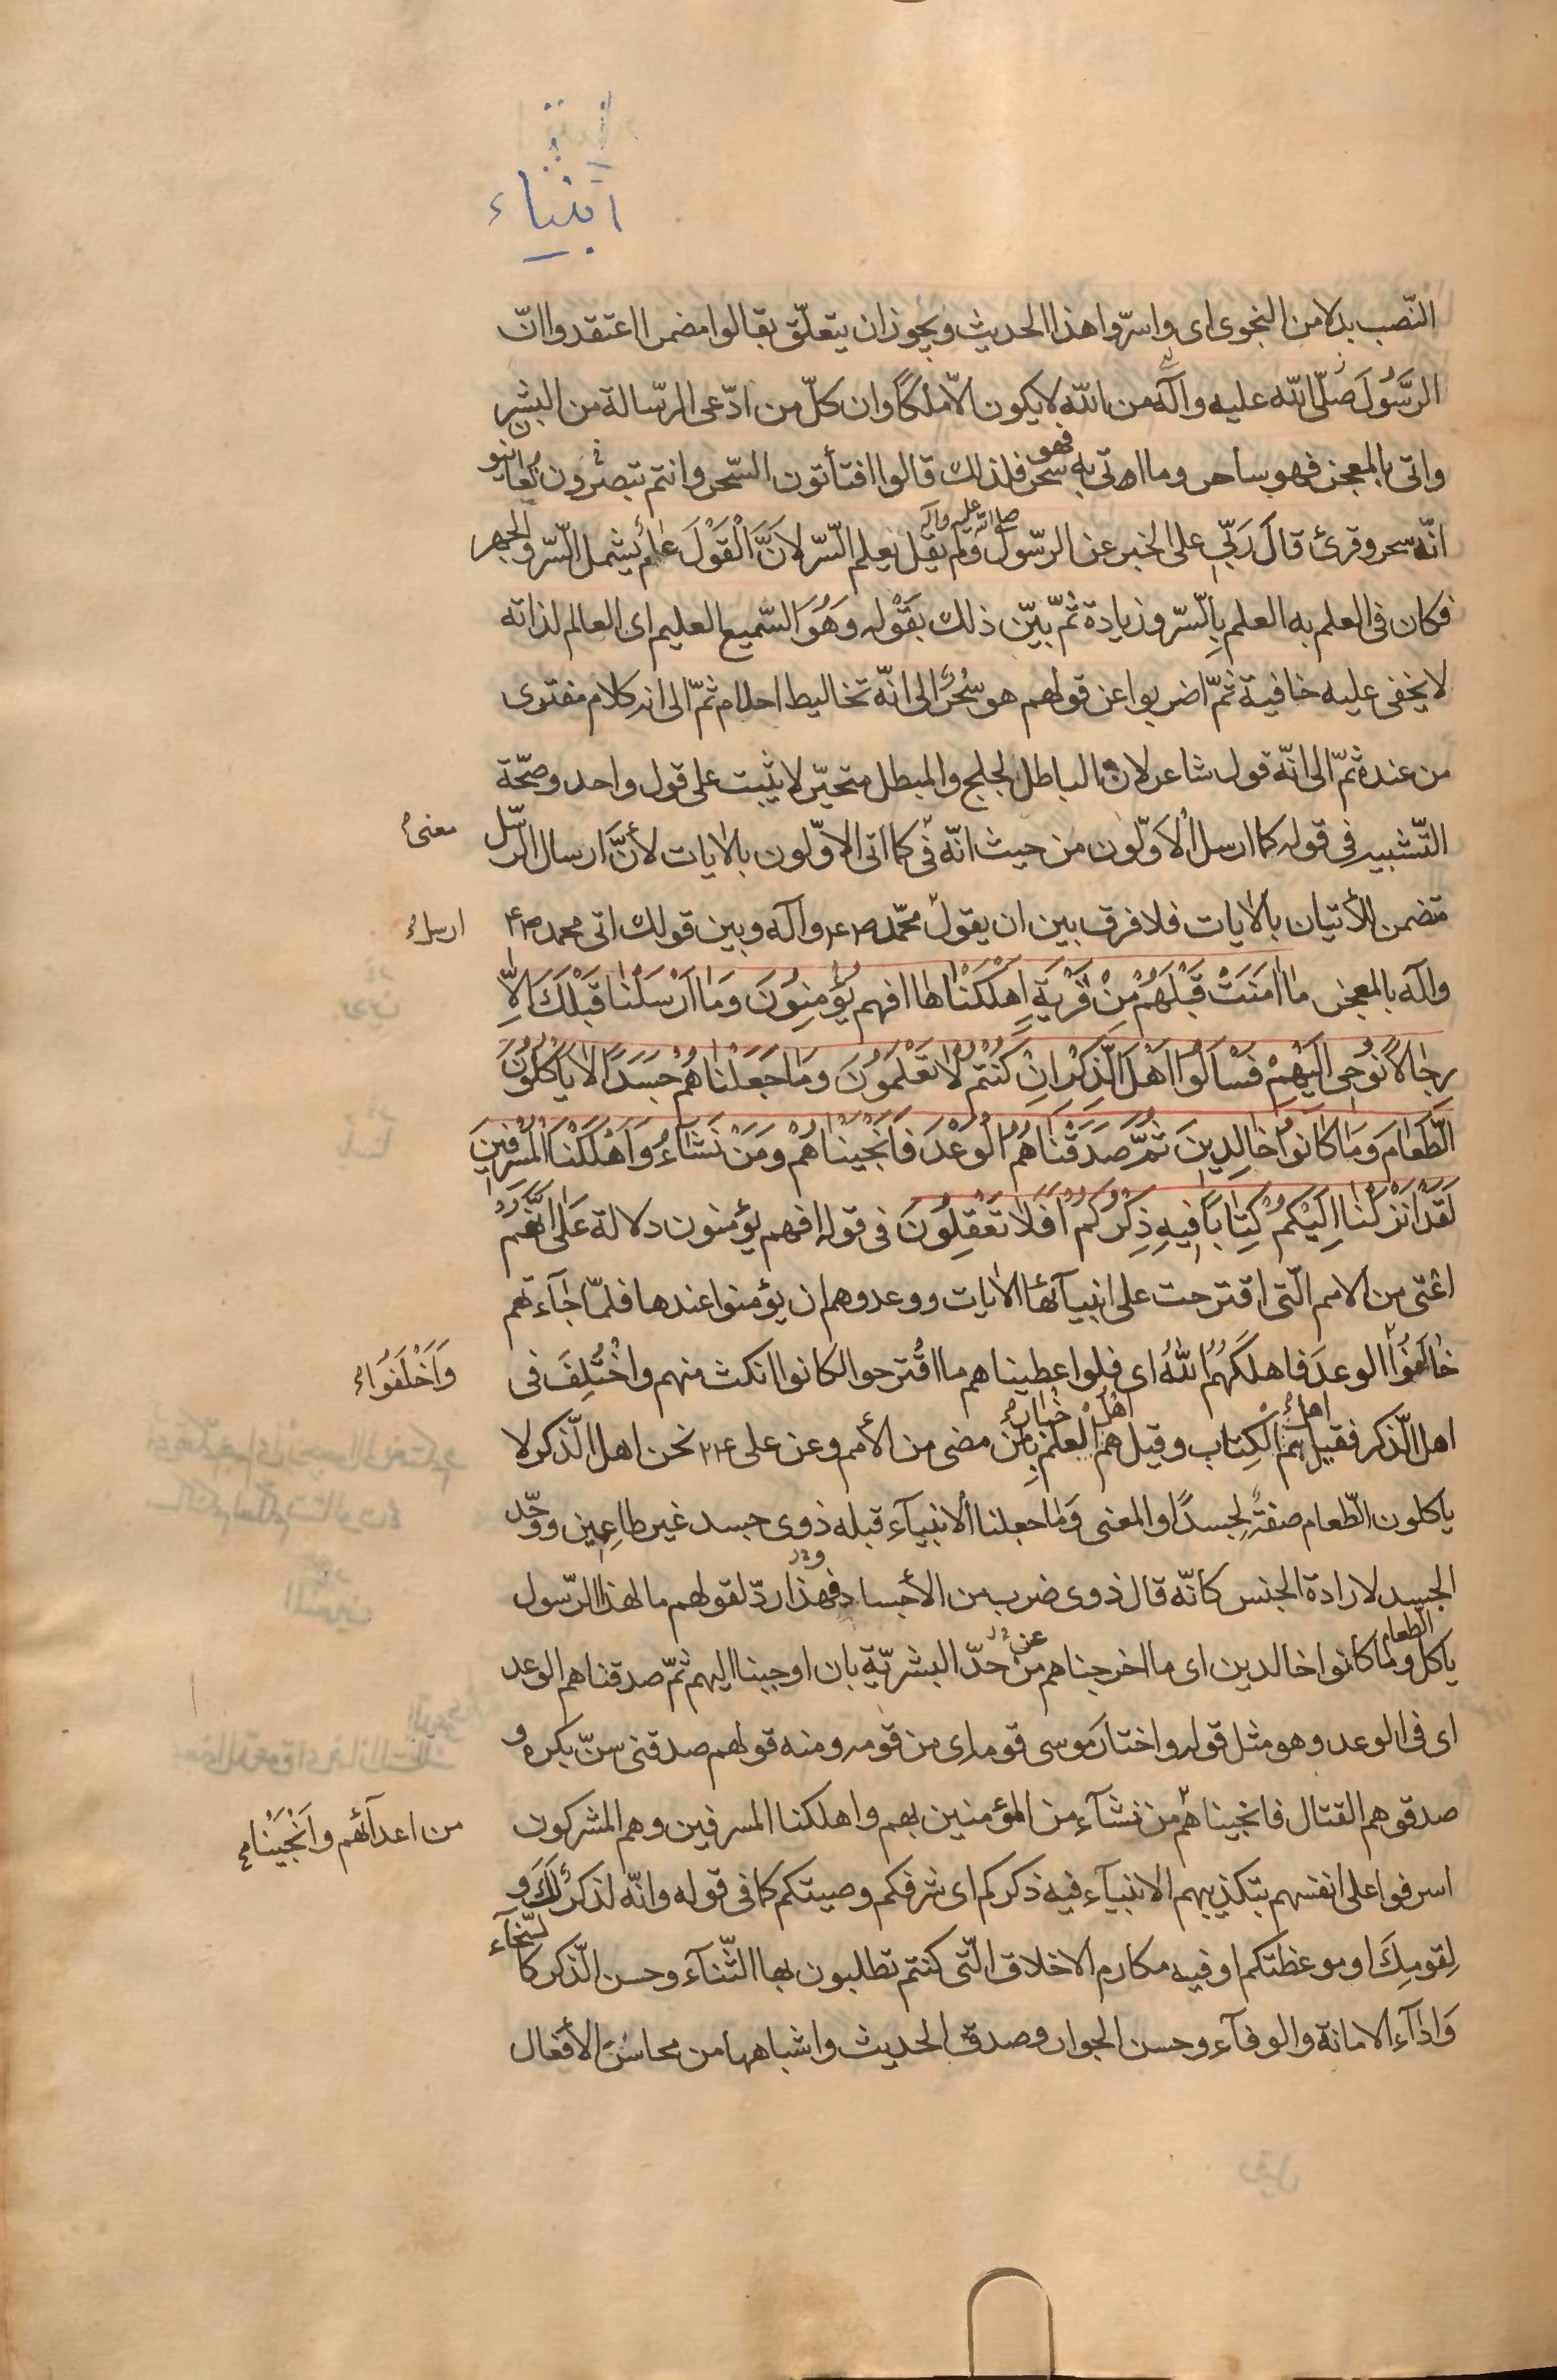 انبیاء
النّصب بدلا من النجوی ای واسرّوا هذا الحدیث ویجوز ان یتعلّق بقالوا مضمرا اعتقدوا انّ
الرَّسُولَ صلّی الله علیه وآله من الله لا یکون الّا ملکًا وان کلّ من ادّعی الرّسالة من البشر
واتی بالمعجز فهو ساحر وما اتی به فهو سحر فلذلك قالوا افتأتون السّحر وانتم تبصرون تعاینون
انّه سحر وقرئ قالَ رَبّی علی الخبر عن الرّسول صلی الله علیه وآله ولم یقل یعلم السّرّ لانَّ الْقَوْلَ عامٌ یشمل السّرّ والجهر
فکان فی العلم به العلم بِالسّرّ وزیادة ثمّ بیّن ذلك بقَوْله وَهُوَ السّمیع العلیم ای العالم لذاته
لا یخفی علیه خافیة ثمّ اضربوا عن قولهم هو سحرٌ الی انّه تخالیط احلام ثمّ الی انه کلام مفتری
من عنده ثمّ الی انّه قول شاعر لان الباطل لجلج والمبطل متحیّر لا یثبت علی قول واحد وصحّة
التّشبیه فی قوله کما ارسل الاَوّلون من حیث انّه فی کما اتی الاوّلون بالایات لأنَّ ارسال الرّسل معنی
متضمن للأتیان بالایات فلا فرق بین ان یقول محمّد ص ع وآله وبین قولك اتی محمد ص ع ارسل
وآله بالمعجز ما اٰمَنَتْ قَبْلَهُمْ مِنْ قَرْیَةٍ اَهْلَکْنٰاهٰا افهم یُؤْمِنُونَ وَمٰا اَرْسَلْنٰا قَبْلَكَ اِلّٰا
رِجٰالًا نُوحی اِلَیْهِمْ فَسْالُوا اَهْلَ الذِّکْرِ اِنْ کُنْتُمْ لٰا تَعْلَمُونَ وَمٰا جَعَلْنٰاهُمْ جَسَدًا لٰا یَاْکُلُونَ
الطَّعٰامَ وَمٰا کٰانُوا خٰالِدینَ ثُمَّ صَدَقْنٰاهُمُ الْوَعْدَ فَاَنْجَیْنٰاهُمْ وَمَنْ نَشٰآءُ وَاَهْلَکْنَا الْمُسْرِفینَ
لَقَدْ اَنْزَلْنٰا اِلَیْکُمْ کِتٰابًا فِیهِ ذِکْرُکُمْ اَفَلٰا تَعْقِلُونَ فی قوله افهم یؤمنون دلالة عَلی انَّهُمْ
اعتی من الامم الّتی اقترحت علی انبیآئها الایات ووعدوهم ان یؤمنوا عندها فلمّا جٰآءتهم
خٰالَفُوا الوعدَ فاهلکهُمُ اللهُ ای فلو اعطیناهم ما اقترحوا لکانوا انکث منهم واخْتُلِفَ فی وَاَخْلَفُوا
اهل الذّکر فقیل هم اهل الکِتٰاب وقیل هم اهل العلم باخبار من مضی من الأمم وعن علی ع نحن اهل الذّکر لا
یاکلون الطّعام صفة لجسدًا والمعنی وَمٰا جعلنا الانبیآء قبله ذوی جسد غیر طاعمین ووحّد
الجسد لارادة الجنس کانّه قال ذوی ضرب من الأجساد وهذا ردّ لقولهم ما لهذا الرّسول
یاکل الطّعام وما کانوا خالدین ای ما اخرجناهم عن حدّ البشریّة بان اوحینا الیهم ثمّ صدقناهم الوعد
ای فی الوعد وهو مثل قوله واختارَ موسی قومه ای من قومه ومنه قولهم صدقنی سنّ بکره و
صدقوهم القتال فانجیناهم من نشآء من المؤمنین بهم واهلکنا المسرفین وهم المشرکون من اعدآئهم وَاَنْجَیْنٰا
اسرفوا علی انفسهم بتکذیبهم الانبیآء فیه ذکرکم ای شرفکم وصیتکم کما فی قوله وانّه لذکرٌ لَكَ و
لِقومِكَ او موعظتکم او فیه مکارم الاخلاق الّتی کنتم تطلبون بها الثّنآء وحسن الذّکر کالسّخآء
وَادٰآء الامانة والوفآء وحسن الجوار وصدق الحدیث واشباهها من محاسن الأفعال